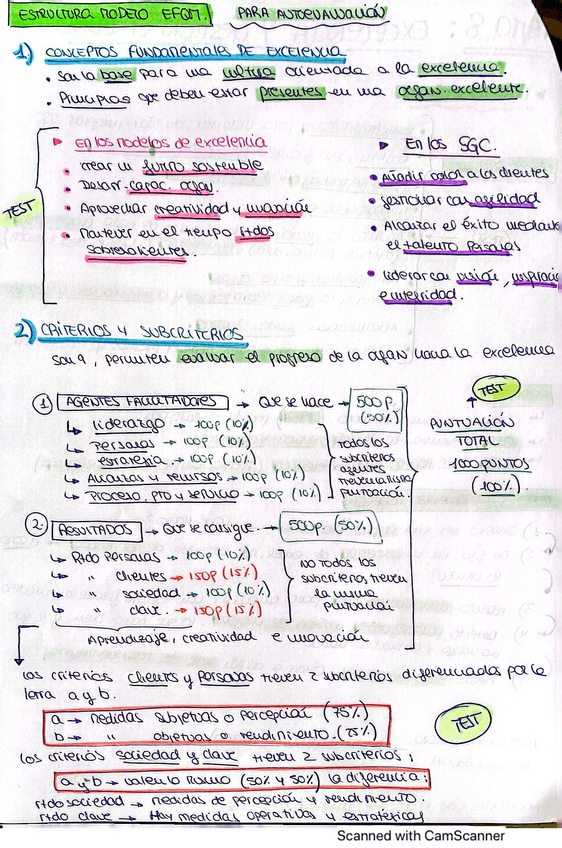 ESTRUCTURA MODELO EFQM. PARA AUTOEVALUACIÓN
1) CONCEPTOS FUNDAMENTALES DE EXCELENCIA
• Son la base para una cultura orientada a la excelencia.
• Principios que deben estar presentes en una organ. excelente.
TEST
▶ En los modelos de excelencia
• crear un futuro sostenible
• Desarr. capac. organ.
• Aprovechar creatividad y innovación
• Mantener en el tiempo rtdos
sobresalientes.
▶ En los SGC.
• Añadir valor a los clientes
• gestionar con agilidad
• Alcanzar el éxito mediante
el talento personas
• liderar con visión, inspirac
e integridad.
2) CRITERIOS Y SUBCRITERIOS
son 9, permiten evaluar el progreso de la organ hacia la excelencia
TEST
PUNTUACIÓN
TOTAL
1000 PUNTOS
(100%).
1 AGENTES FACILITADORES → Que se hace → 500 p. (50%)
↳ liderazgo → 100p (10%)
↳ Personas → 100p (10%)
↳ estrategia → 100p (10%)
↳ Alianzas y recursos → 100p (10%)
↳ Proceso, pto y servicio → 100p (10%)
todos los
subcriterios
agentes
tienen la misma
puntuación.
2 RESULTADOS → Que se consigue. → 500p. (50%)
↳ Rtdo Personas → 100p (10%)
↳ " clientes → 150p (15%)
↳ " sociedad → 100p (10%)
↳ " clave. → 150p (15%)
NO todos los
subcriterios tienen
la misma
puntuación
Aprendizaje, creatividad e innovación
los criterios clientes y Personas tienen 2 subcriterios diferenciados por la
letra a y b.
a → Medidas subjetivas o percepción (75%)
b → " objetivas o rendimiento. (25%)
TEST
los criterios sociedad y clave tienen 2 subcriterios;
a y b → valen lo mismo (50% y 50%) la diferencia:
rtdo sociedad → medidas de percepción y rendimiento.
rtdo clave → Hay medidas operativas y estratégicas
Scanned with CamScanner